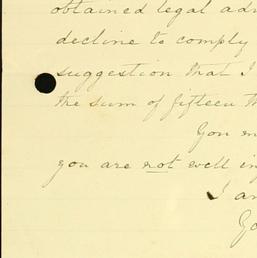 obtained legal
decline to comply
suggestion that I
the sum of fifteen
You
you are not well
I am